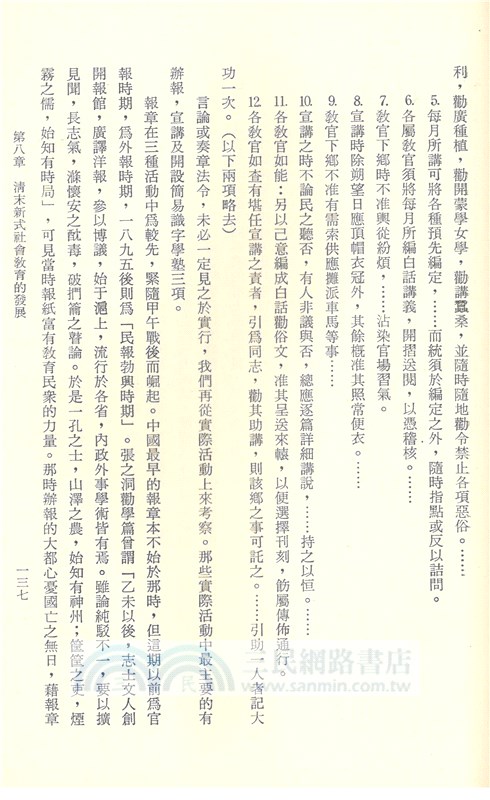 利，勸廣種植，勸開蒙學女學，勸講蠶桑，並隨時隨地勸令禁止各項惡俗。……
5.每月所講可將各種預先編定，……而統須於編定之外，隨時指點或反以詰問。
6.各屬教官須將每月所編白話講義，開摺送閱，以憑稽核。……
7.教官下鄉時不准輿從紛煩，……沾染官場習氣。
8.宣講時除朔望日應頂帽衣冠外，其餘概准其照常便衣。……
9.教官下鄉不准有需索供應攤派車馬等事……
10.宣講之時不論民之聽否，有人非議與否，總應逐篇詳細講說，……持之以恒。……
11.各教官如能：另以己意編成白話勸俗文，准其呈送來轅，以便選擇刊刻，飭屬傳佈通行。
12.各教官如查有堪任宣講之責者，引爲同志，勸其助講，則該鄉之事可託之。……引助一人者記大
功一次。（以下兩項略去）
言論或奏章法令，未必一定見之於實行，我們再從實際活動上來考察。那些實際活動中最主要的有
辦報，宣講及開設簡易識字學塾三項。
報章在三種活動中爲較先，緊隨甲午戰後而崛起。中國最早的報章本不始於那時，但這期以前爲官
報時期，爲外報時期，一八九五後則爲「民報勃興時期」。張之洞勸學篇曾謂「乙未以後，志士文人創
開報館，廣譯洋報，參以博議，始于滬上，流行於各省，內政外事學術皆有焉。雖論純駁不一，要以擴
見聞，長志氣，滌懷安之酖毒，破捫籥之瞽論。於是一孔之士，山澤之農，始知有神州；筐篋之吏，煙
霧之儒，始知有時局」，可見當時報紙富有教育民衆的力量。那時辦報的大都心憂國亡之無日，藉報章
第八章　清末新式社會教育的發展
一三七
三民網路書店
www.sanmin.com.tw